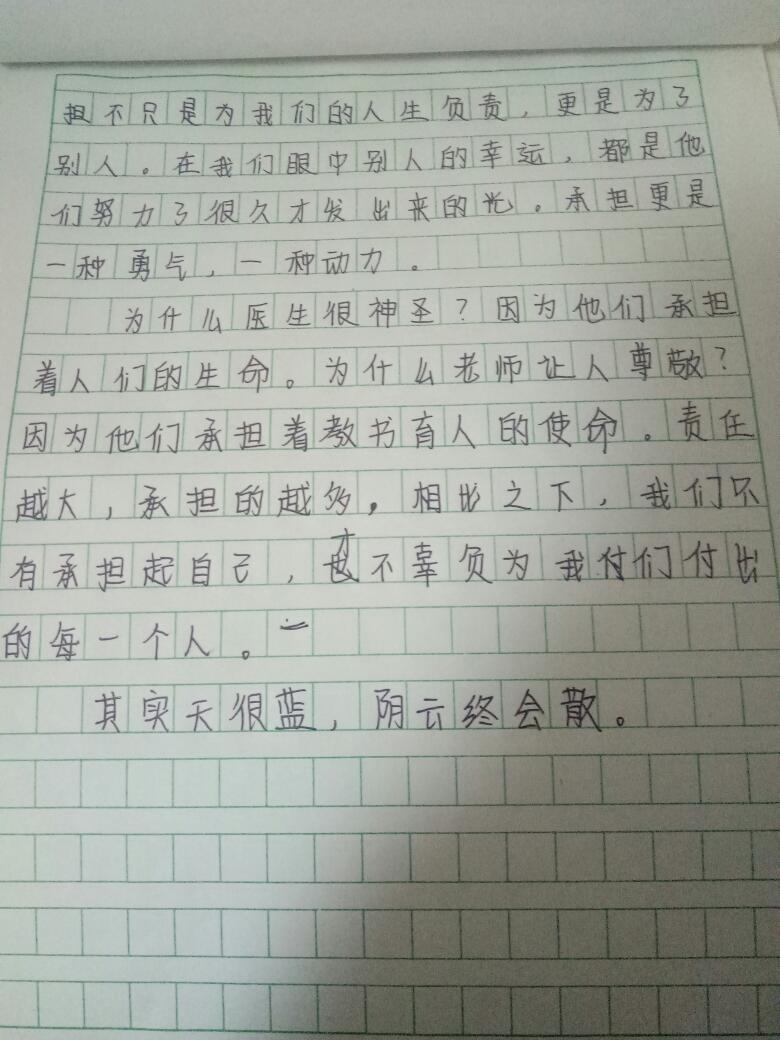 担不只是为我们的人生负责，更是为了
别人。在我们眼中别人的幸运，都是他
们努力了很久才发出来的光。承担更是
一种勇气，一种动力。
为什么医生很神圣？因为他们承担
着人们的生命。为什么老师让人尊敬？
因为他们承担着教书育人的使命。责任
越大，承担的越多，相比之下，我们只
有承担起自己，才不辜负为我付们付出
的每一个人。
其实天很蓝，阴云终会散。